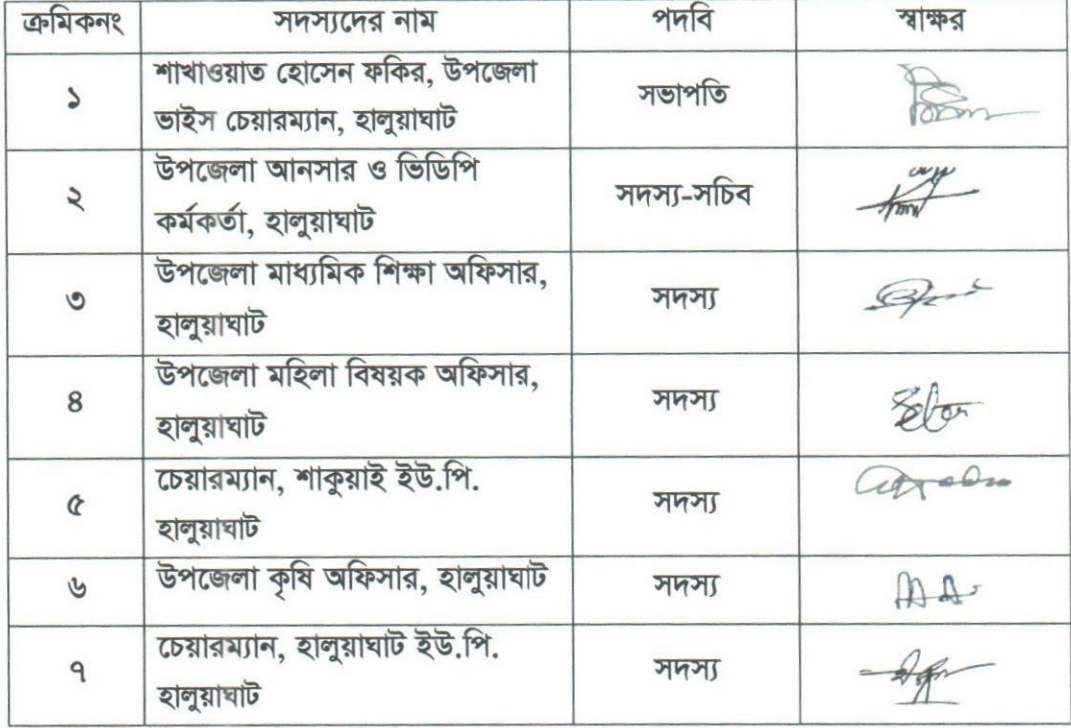 ক্রমিকনং সদস্যদের নাম পদবি স্বাক্ষর
১ শাখাওয়াত হোসেন ফকির, উপজেলা
ভাইস চেয়ারম্যান, হালুয়াঘাট সভাপতি
২ উপজেলা আনসার ও ভিডিপি
কর্মকর্তা, হালুয়াঘাট সদস্য-সচিব
৩ উপজেলা মাধ্যমিক শিক্ষা অফিসার,
হালুয়াঘাট সদস্য
৪ উপজেলা মহিলা বিষয়ক অফিসার,
হালুয়াঘাট সদস্য
৫ চেয়ারম্যান, শাকুয়াই ইউ.পি.
হালুয়াঘাট সদস্য
৬ উপজেলা কৃষি অফিসার, হালুয়াঘাট সদস্য
৭ চেয়ারম্যান, হালুয়াঘাট ইউ.পি.
হালুয়াঘাট সদস্য